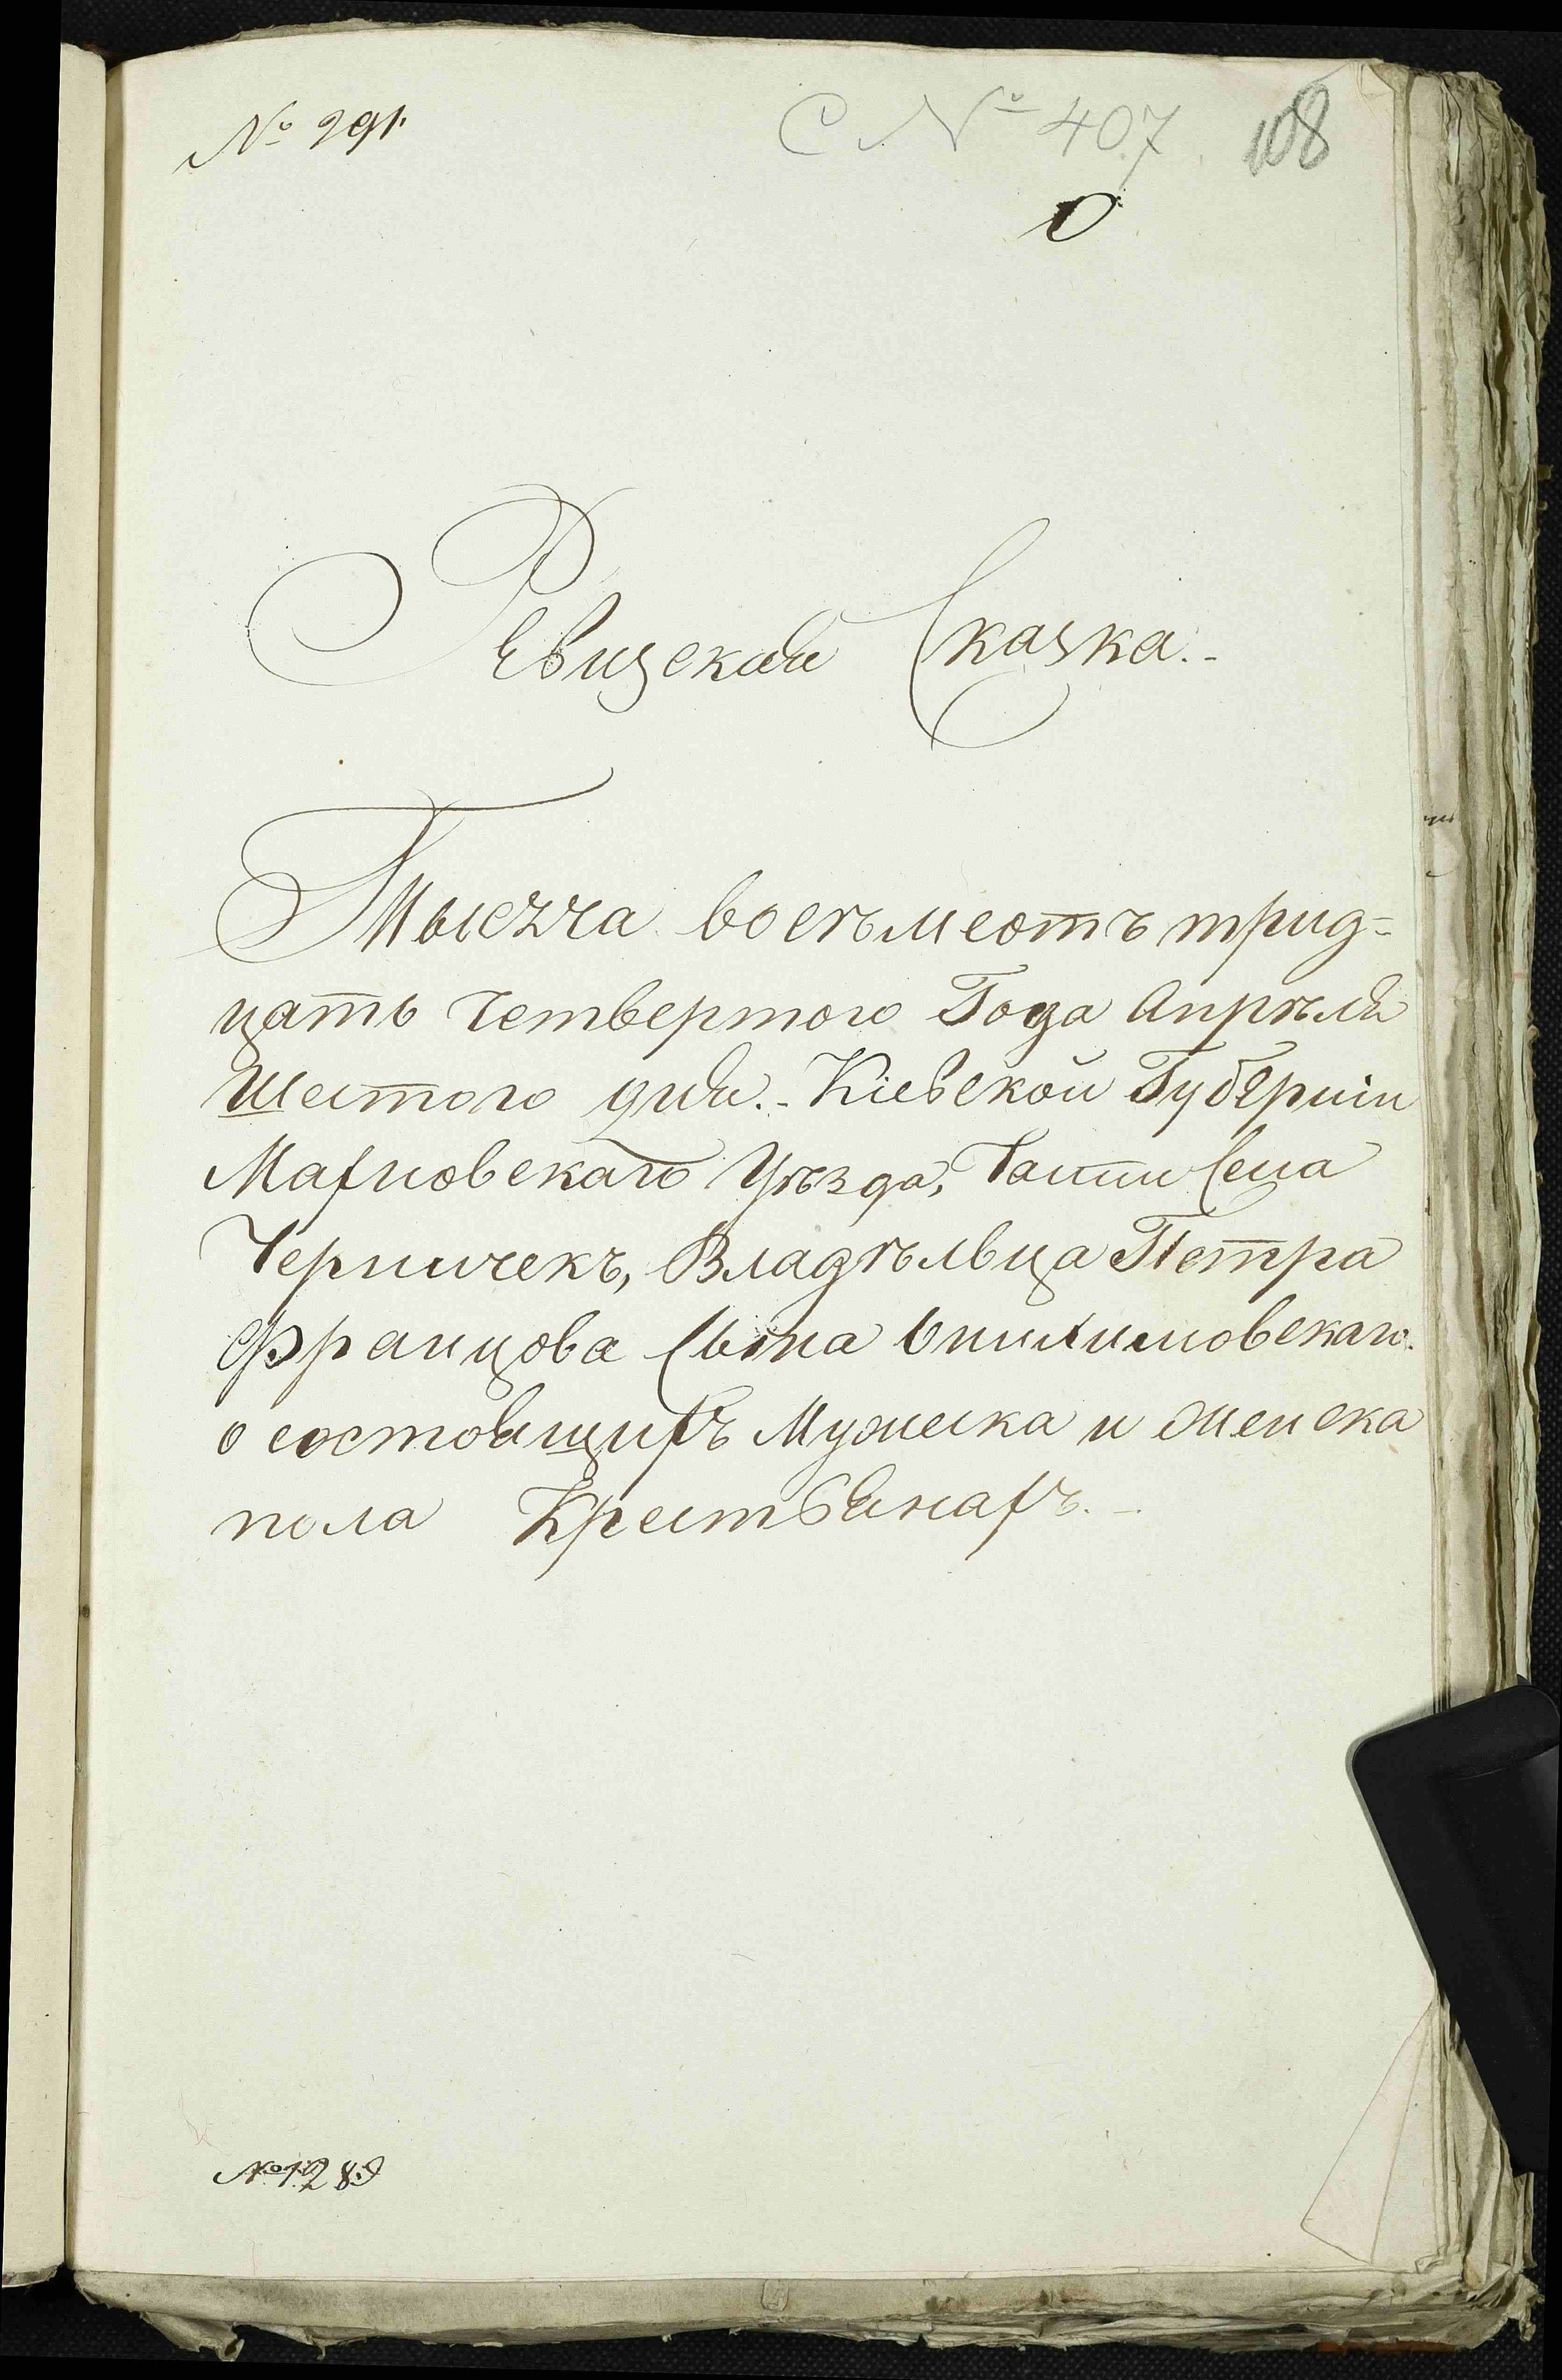 № 291.
С № 407. 108
Ревизская Сказка.
Тысяча восемьсотъ трид=
цать Четвертого Года Апрѣля
Шестого дня. Кіевской Губерніи
Махновскаго Уѣзда, Части Села
Черничекъ, Владѣльца Петра
Францова Сына
о состоящихъ Мужеска и Женска
пола Крестьянахъ.
№ 1289